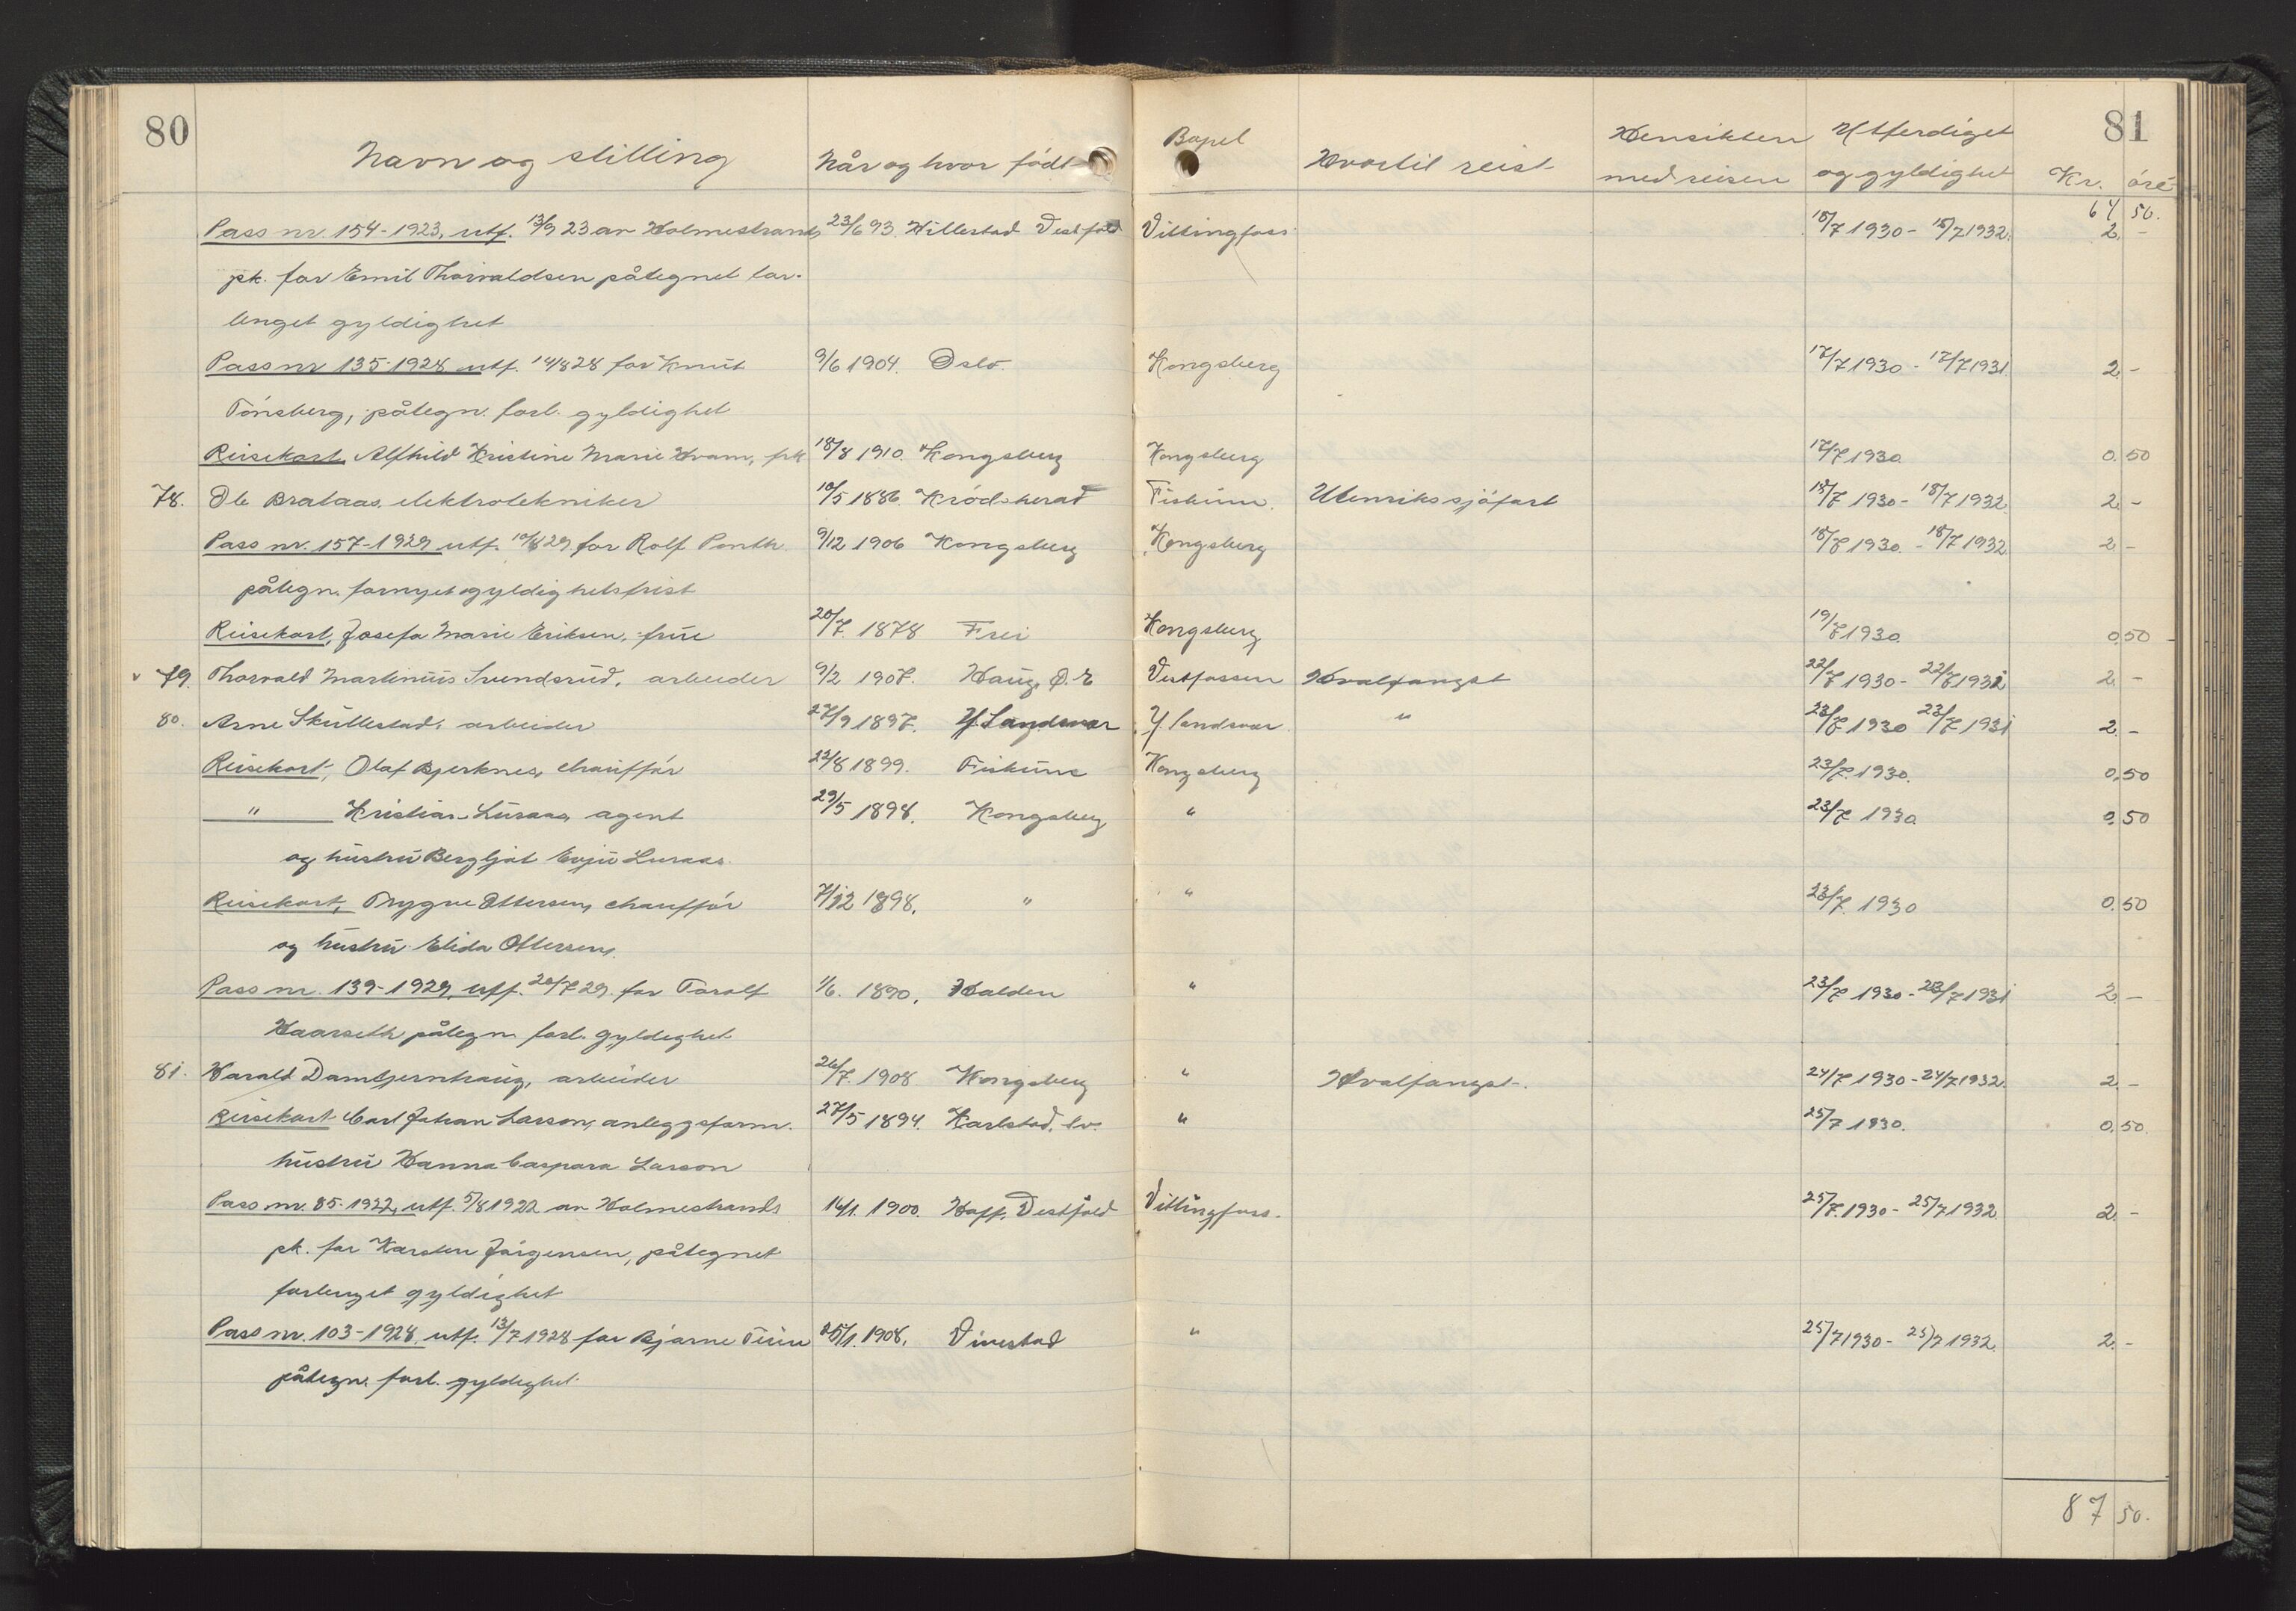 80
81
Navn og stilling Når og hvor født Bopel Hvortil reist Hensikten med reisen Utferdiget og gyldighet Kr. øre
64 50.
Pass nr. 154-1923, utf. 13/9 23 av Holmestrands 23/6 93 Hillestad Vestfold Vittingfoss 18/7 1930 - 18/7 1932. 2. -
pk. for Emil Thorvaldsen påtegnet for-
lenget gyldighet
Pass nr 135-1928 utf. 14/8 28 for Knut 9/6 1904. Oslo. Kongsberg 17/7 1930 - 17/7 1931. 2. -
Tønsberg, påtegn. forl. gyldighet
Reisekort, Alfhild Kristine Marie Kvam, frk 18/8 1910. Kongsberg Kongsberg 17/7 1930. 0.50
78. Ole Brataas, elektrotekniker 10/5 1886. Krødsherad Fiskum. Utenriks sjøfart 18/7 1930 - 18/7 1932. 2. -
Pass nr. 157-1929 utf. 10/8 29 for Rolf Ponth 9/12 1906 Kongsberg Kongsberg 18/7 1930. - 18/7 1932. 2 -
påtegn. fornyet gyldighetsfrist
Reisekort, Josefa Marie Eriksen, frue 20/7. 1878 Frei Kongsberg 19/7 1930. 0.50
v 79. Thorvald Martinius Svendsrud, arbeider 9/2 1907. Haug, Ø. E Vestfossen Hvalfangst 22/7 1930 - 22/7 1932 2 -
80. Arne Skullestad, arbeider 27/9 1897. Y. Sandsvær Y. Sandsvær " 23/7 1930 23/7 1931 2. -
Reisekort, Olaf Bjerknes, chauffør 22/8 1899. Fiskum Kongsberg 23/7. 1930. 0,50
" Kristian Luraas, agent 29/5 1898. Kongsberg " 23/7 1930 0,50
og hustru Bergljot Evju Luraas.
Reisekort, Trygve Ottersen, chauffør 7/12 1898. " " 23/7. 1930 0.50
og hustru Elida Ottersen,
Pass nr. 139-1929, utf. 20/7 29. for Torolf 1/6. 1890. Halden " 23/7 1930 - 23/7 1931 2. -
Haarseth påtegn. forl. gyldighet
81. Harald Damtjernhaug, arbeider 26/7. 1908 Kongsberg " Hvalfangst. 24/7 1930 - 24/7 1932. 2. -
Reisekort Carl Johan Larson, anleggsform. 27/5 1894. Karlstad, Sv. " 25/7 1930. 0.50.
hustru Hanna Caspara Larson
Pass nr. 85-1922, utf. 5/8 1922 av Holmestrands 16/1. 1900. Hoff, Vestfold Vittingfoss. 25/7. 1930 - 25/7 1932. 2. -
pk. for Karsten Jørgensen, påtegnet
forlenget gyldighet
Pass nr. 103-1928. utf. 13/7 1928 for Bjarne Teien 25/1. 1908. Vivestad " 25/7 1930 - 25/7 1932. 2. -
påtegn. forl. gyldighet.
87 50.